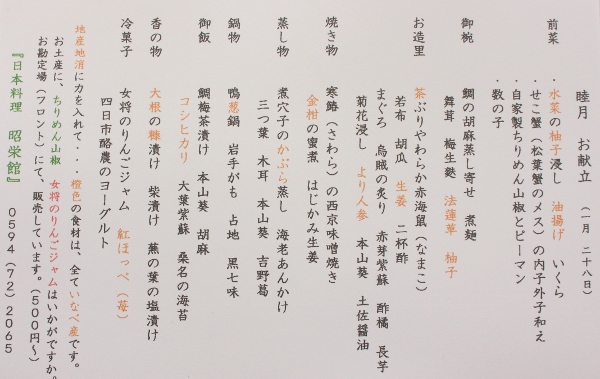 睦月 お献立 (一月 二十八日)
前菜
・水菜の柚子浸し 油揚げ いくら
・せこ蟹(松葉蟹のメス)の内子外子和え
・自家製ちりめん山椒とピーマン
・数の子
御椀
鯛の胡麻蒸し寄せ 煮麺
舞茸 梅生麩 法蓮草 柚子
お造里
茶ぶりやわらか赤海鼠(なまこ)
若布 胡瓜 生姜 二杯酢
まぐろ 烏賊の炙り 赤芽紫蘇 酢橘 長芋
菊花浸し より人参 本山葵 土佐醤油
焼き物
寒鰆(さわら)の西京味噌焼き
金柑の蜜煮 はじかみ生姜
蒸し物
煮穴子のかぶら蒸し 海老あんかけ
三つ葉 木耳 本山葵 吉野葛
鍋物
鴨葱鍋 岩手がも 占地 黒七味
御飯
鯛梅茶漬け 本山葵 胡麻
コシヒカリ 大葉紫蘇 桑名の海苔
香の物
大根の糠漬け 柴漬け 蕪の葉の塩漬け
冷菓子
女将のりんごジャム 紅ほっぺ(苺)
四日市酪農のヨーグルト
地産地消に力を入れて・・橙色の食材は、全ていなべ産です。
お土産に、ちりめん山椒 女将のりんごジャムはいかがですか。
お勘定場(フロント)にて、販売しています。(500円〜)
『日本料理 昭栄館』 0594(72)2065